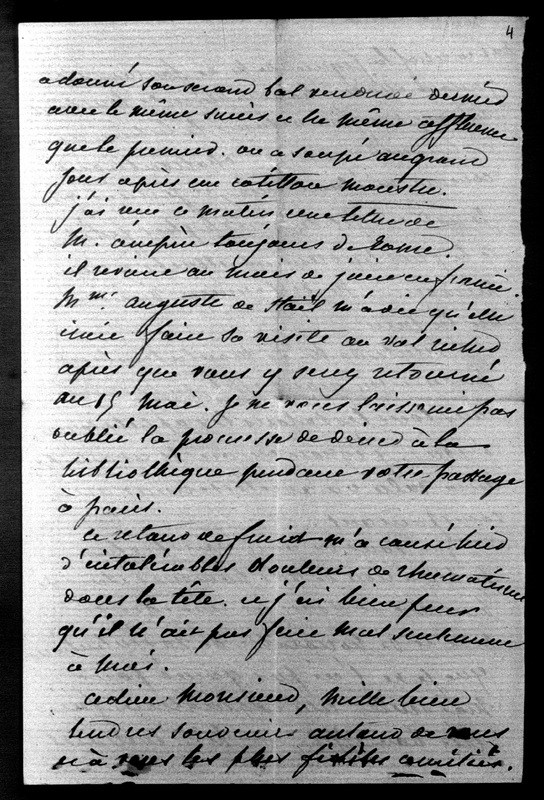 4
a donné son second bal vendredi dernier
avec le même succès et la même affluence
que le premier. on a soupé au grand
jour après un cotillon monstre.
j'ai vu ce matin une lettre de
M. toujours de Rome.
il revient au mois de juin en france.
Mme auguste de Staël m'a dit qu'elle
irait faire sa visite au val richer
après que vous y serez retourné
au 15 mai. je ne vous laisserai pas
oublier la promesse de dîner à la
bibliothèque pendant votre passage
à paris.
ce retour de froid m'a causé hier
d'intolérables douleurs de rhumatisme
dans la tête. et j'ai bien peur
qu'il n'ait pas fait mal seulement
à moi.
adieu Monsieur, mille bien
tendres souvenirs autour de vous
et à vous les plus fidèles amitiés.